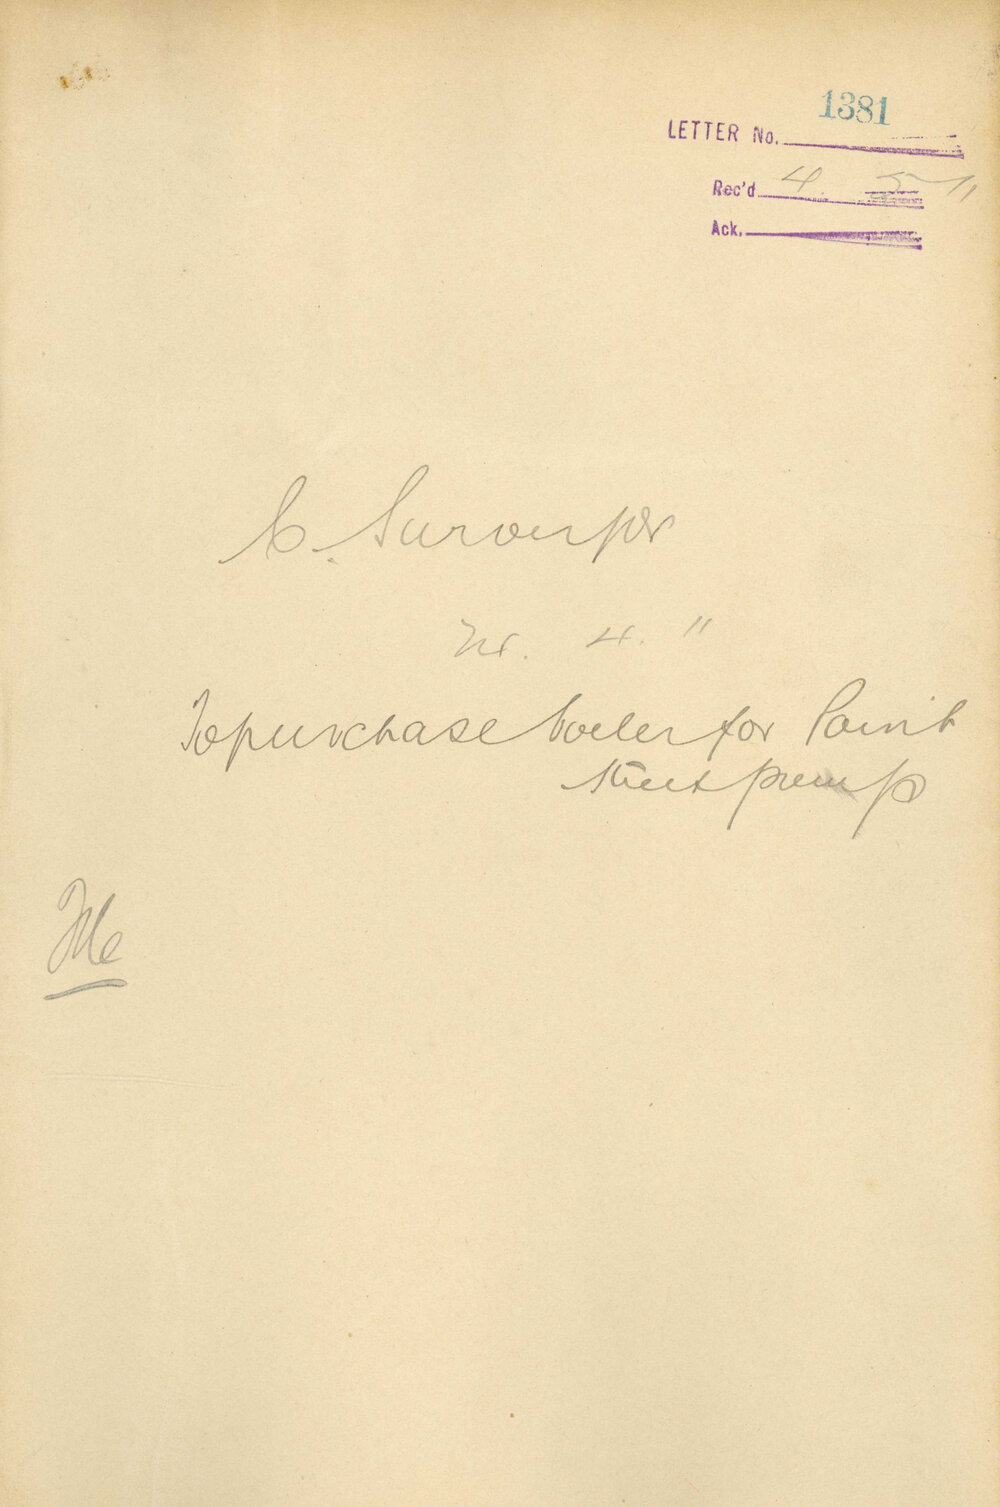 1381
LETTER No.
Rec'd 4. 5 11
Ack.
C. Surveyor
4. "
To purchase boiler for Point
Street pump
File